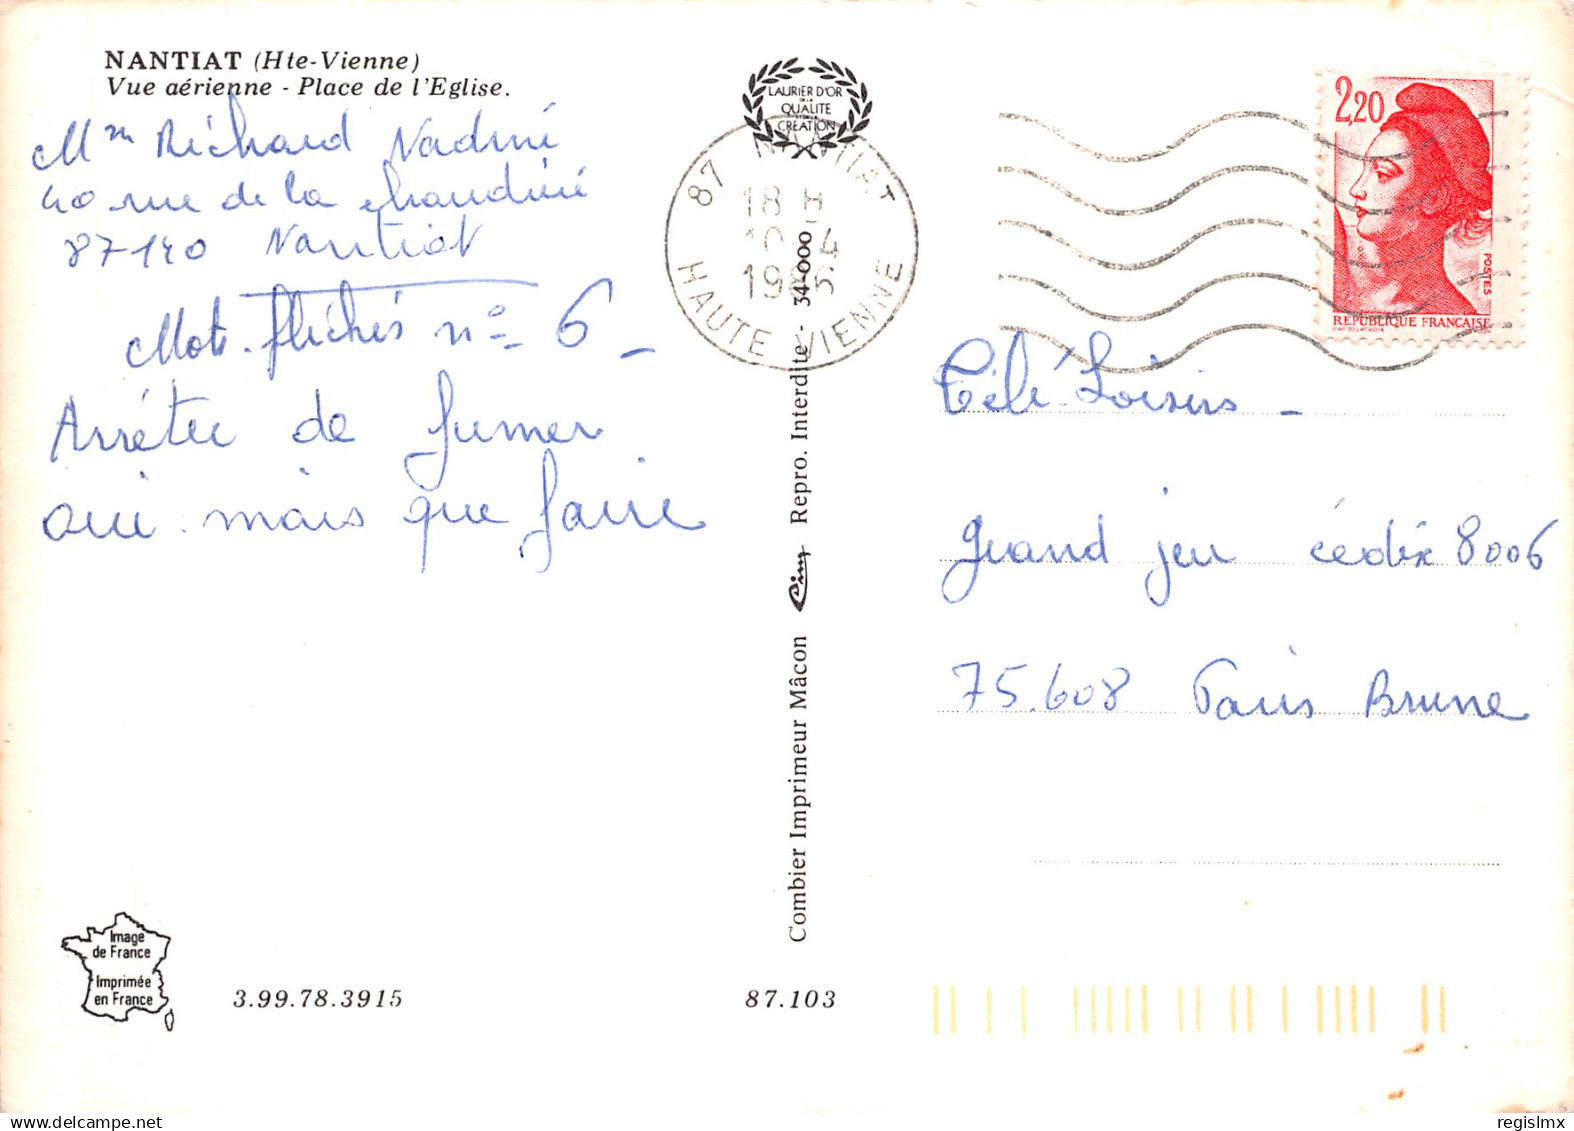 NANTIAT (Hte-Vienne)
Vue aérienne - Place de l'Eglise.
Mm Richard Nadine
40 rue de la chaudière
87140 Nantiat
Mots fléchés n° 6 -
Arrêter de fumer
oui mais que faire
LAURIER D'OR
DE LA
QUALITE
CREATION
87 NANTIAT
18 H
10 4
1986
HAUTE VIENNE
2,20
POSTES
REPUBLIQUE FRANÇAISE
Télé-Loisirs -
Grand jeu cédex 8006
75.608 Paris Brune
Combier Imprimeur Mâcon Cim Repro. Interdite - 34-000
Image
de France
Imprimée
en France
3.99.78.3915
87.103
regislmx